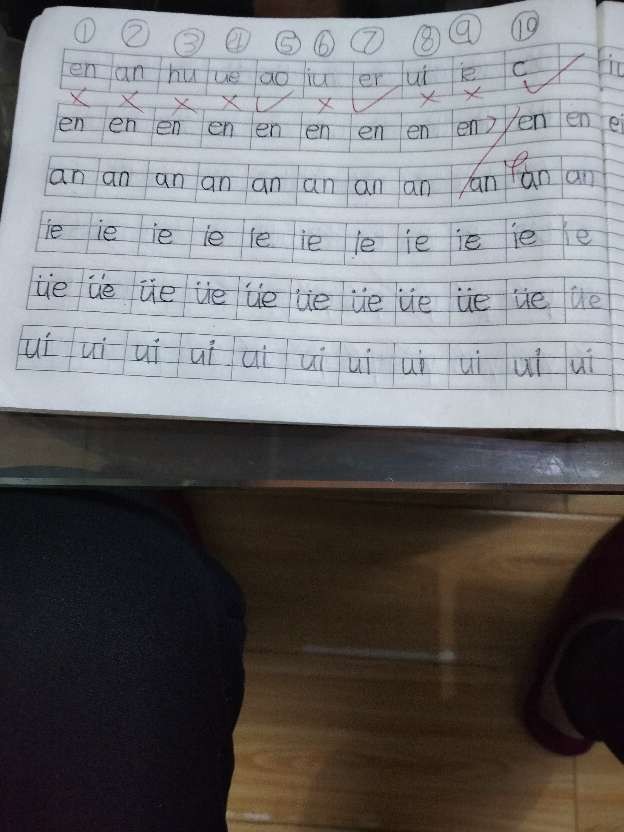 ① ② ③ ④ ⑤ ⑥ ⑦ ⑧ ⑨ ⑩
en an hu ue ao iu er ui ie c iu
× × × × ✓ × ✓ × × ✓
en en en en en en en en en en en ei
an an an an an an an an an an an
ie ie ie ie ie ie ie ie ie ie ie
üe üe üe üe üe üe üe üe üe üe üe
ui ui ui ui ui ui ui ui ui ui ui